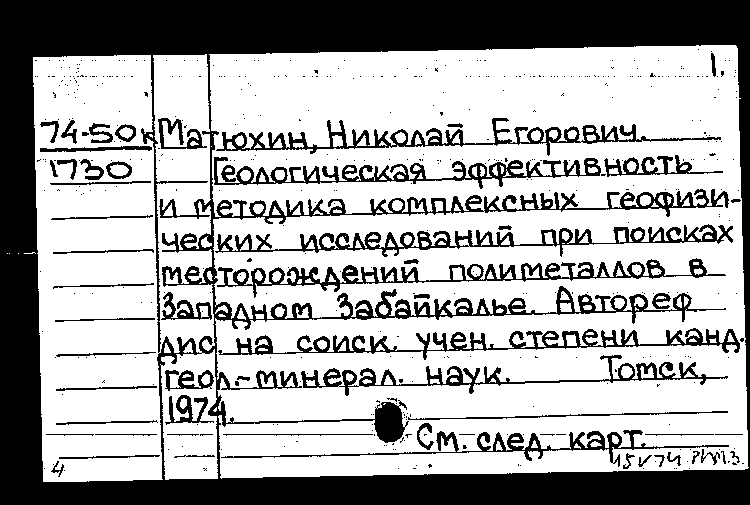 1.
74-50к Матюхин, Николай Егорович.
1730 Геологическая эффективность
и методика комплексных геофизи-
ческих исследований при поисках
месторождений полиметаллов в
Западном Забайкалье. Автореф
дис. на соиск. учен. степени канд.
геол.-минерал. наук. Томск,
1974.
См. след. карт.
4